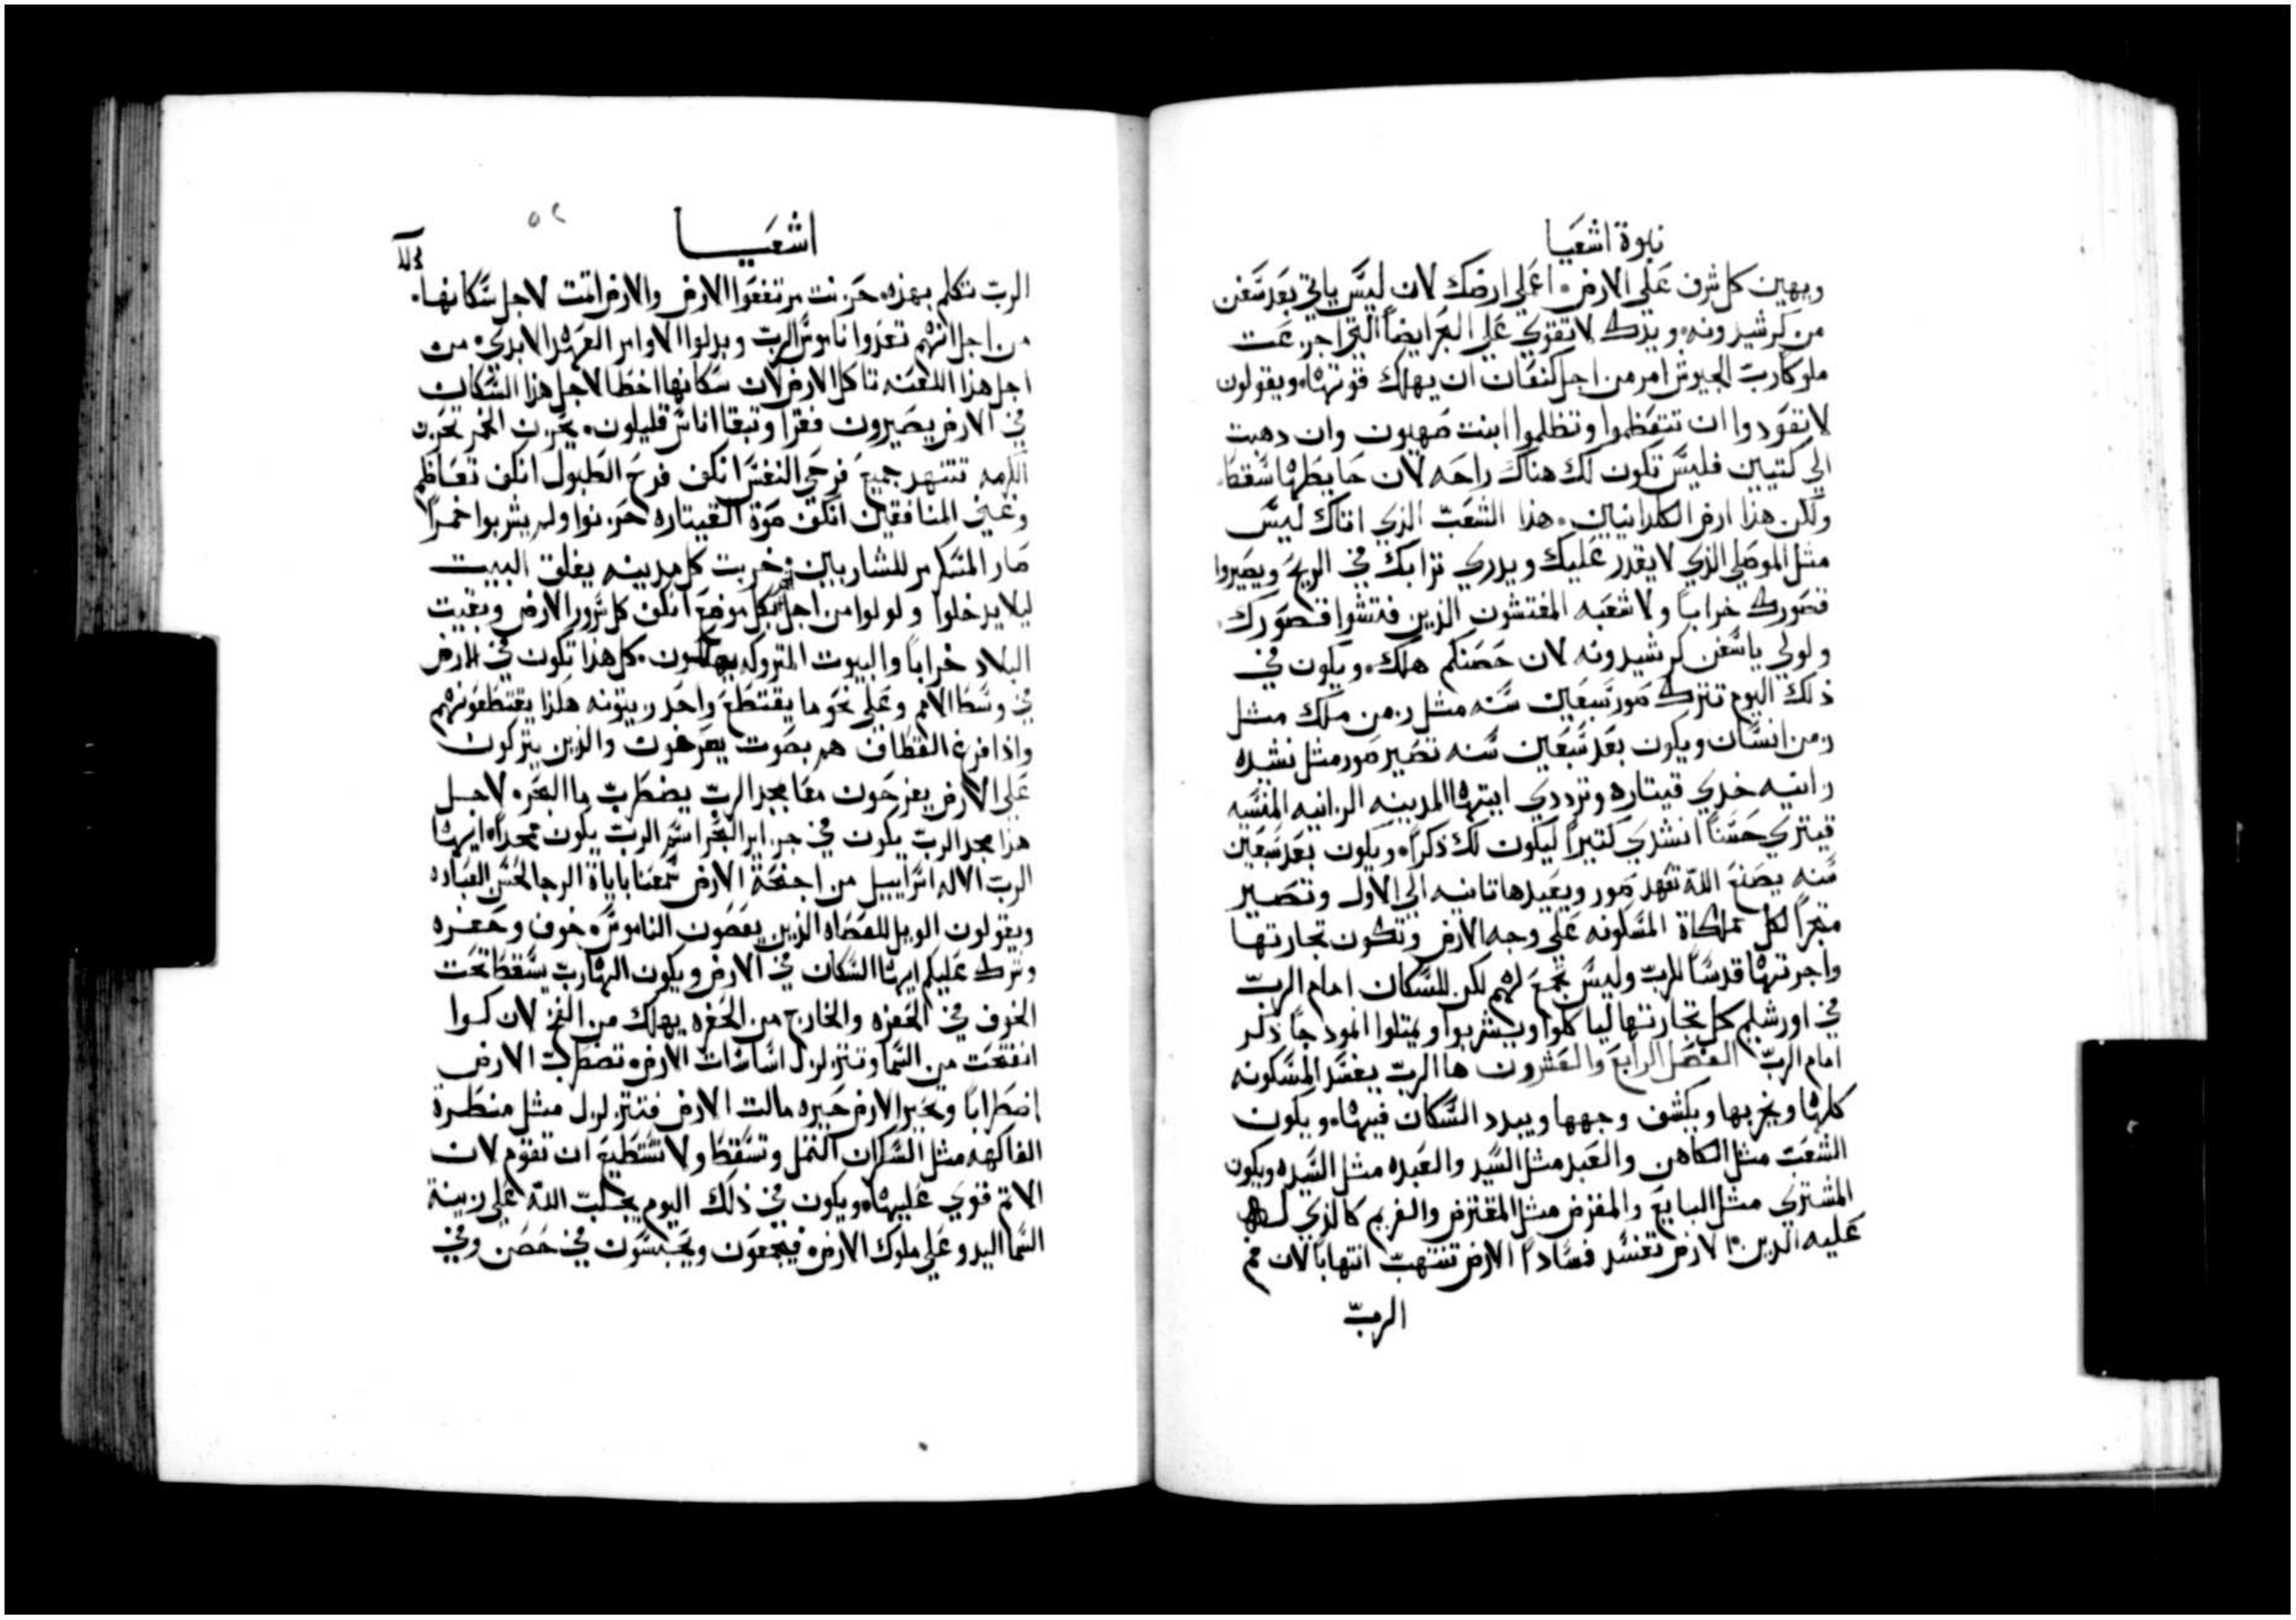 نبوة اشعيا
ويهين كل شرف على الارض. اعملي ارضك لان ليس ياتي بعد سفن
من كرشيدونه. ويدك لا تقوي على البحر ايضاً التي اجزعت
ملوكا رب الجيوش امر من اجل كنعان ان يهلك قوتها. ويقولون
لا تعودوا ان تتعظموا وتظلموا ابنت صهيون وان دهبت
الي كتيين فليس تكون لك هناك راحه لان حايطها سقط
ولكن هذا ارض الكلدانيين. هذا الشعب الذي اتاك ليس
مثل الموصلي الذي لا يقدر عليك ويدري ترابك في الريح ويصيروا
قصورك خراباً ولا شعبه المفتشون الذين فتشوا قصورك.
ولولي يا سفن كرشيدونه لان حصنكم هلك. ويكون في
ذلك اليوم تترك صور سبعين سنه مثل زمن ملك مثل
زمن انسان ويكون بعد سبعين سنه تصير صور مثل نشده
زانيه خدي قيتاره وترددي ايتها المدينه الزانيه المنسيه
قيتري حسناً انشدي كتيراً ليكون لك ذكراً. ويكون بعد سبعين
سنه يصنع الله تعهد صور ويعيدها تانيه الي الاول وتصير
متجراً لكل مملكاة المسكونه على وجه الارض وتكون تجارتها
واجرتها قدساً للرب وليس تجمع لهم لكن للسكان امام الرب
في اورشليم كل تجارتها لياكلوا ويشربوا ويمتلوا انمودجاً ذكر
امام الرب الفصل الرابع والعشرون ها الرب يفسد المسكونه
كلها ويخربها ويكشف وجهها ويبدد السكان فيها. ويكون
الشعب مثل الكاهن والعبد مثل السيد والعبده مثل السيده ويكون
المشتري مثل البايع والمقرض مثل المقترض والغريم كالذي له
عليه الدين. الارض تفسد فساداً الارض تنتهب انتهاباً لان فم
الرب
اشعيا
٥٢
الرب تكلم بهذه. حزنت مرتفعوا الارض والارض اتت لاجل سكانها.
من اجل انهم تعدوا ناموس الرب وبدلوا الاوامر العهد الابدي. من
اجل هذا اللعنه تاكل الارض لان سكانها اخطا لاجل هذا السكان
في الارض يصيرون فقرا وتبقا اناس قليلون. يحزن الخمر تحزن
الكرمه تتنهد جميع فرحي النفس انكف فرح الطبول انكف تعاظم
وغني المنافقين انكف صوة القيتاره حزنوا ولم يشربوا خمراً
صار المسكر مر للشاربين. خربت كل مدينه يغلق البيت
ليلا يدخلوا ولولوا من اجل الخمر بكل موضع انكف كل سرور الارض وبقيت
البلاد خراباً والبيوت المتروكه يهلكون. كل هذا تكون في الارض
في وسط الامم وعلي نحو ما يقتطع واحد زيتونه هكذا يقتطعونهم
واذا فرغ القطاف هم بصوت يصرخون والذين يتركون
علي الارض يفرحون معا بمجد الرب يضطرب ما البحر. لاجل
هذا مجد الرب يكون في جزاير البحر اسم الرب يكون ممجداً. ايها
الرب الاله اسراييل من اجنحة الارض سمعنا باياة الرجا لحسن العباده
ويقولون الويل للعصاه الذين يعصون الناموس. خوف وحفره
وشرك عليكم ايها السكان في الارض ويكون الهارب يسقط تحت
الخوف في الحفره والخارج من الحفره يهلك من الفخ لان كوا
انفتحت من السما وتتزلزل اساسات الارض. تضطرب الارض
اضطراباً وتحير الارض حيره مالت الارض فتتزلزل مثل منطرة
الفاكهه مثل السكران التمل وتسقط ولا تستطيع ان تقوم لان
الاتم قوي عليها. ويكون في ذلك اليوم يجلب الله علي زينة
السما اليد وعلي ملوك الارض. فيجمعون ويحبسون في حصن وفي